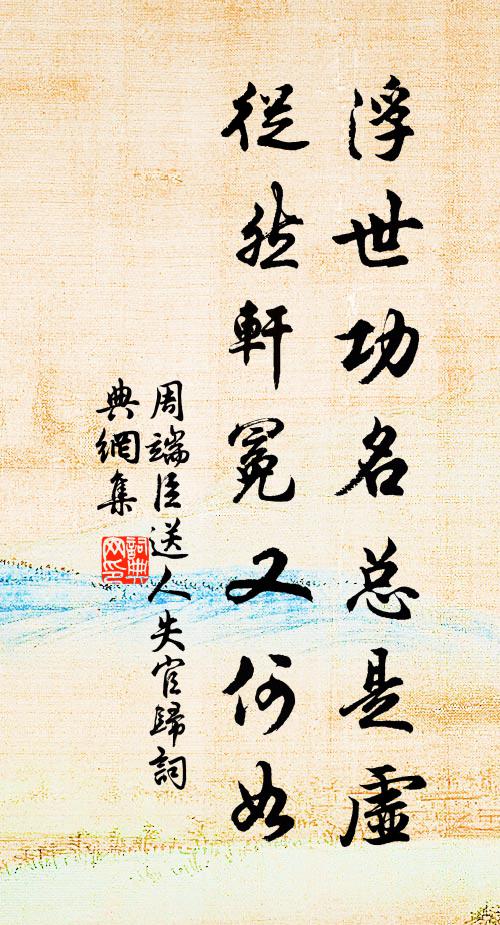 浮世功名总是虛
從然軒冕又何如
周端臣送人失官歸詞
典網集
詞典
网印